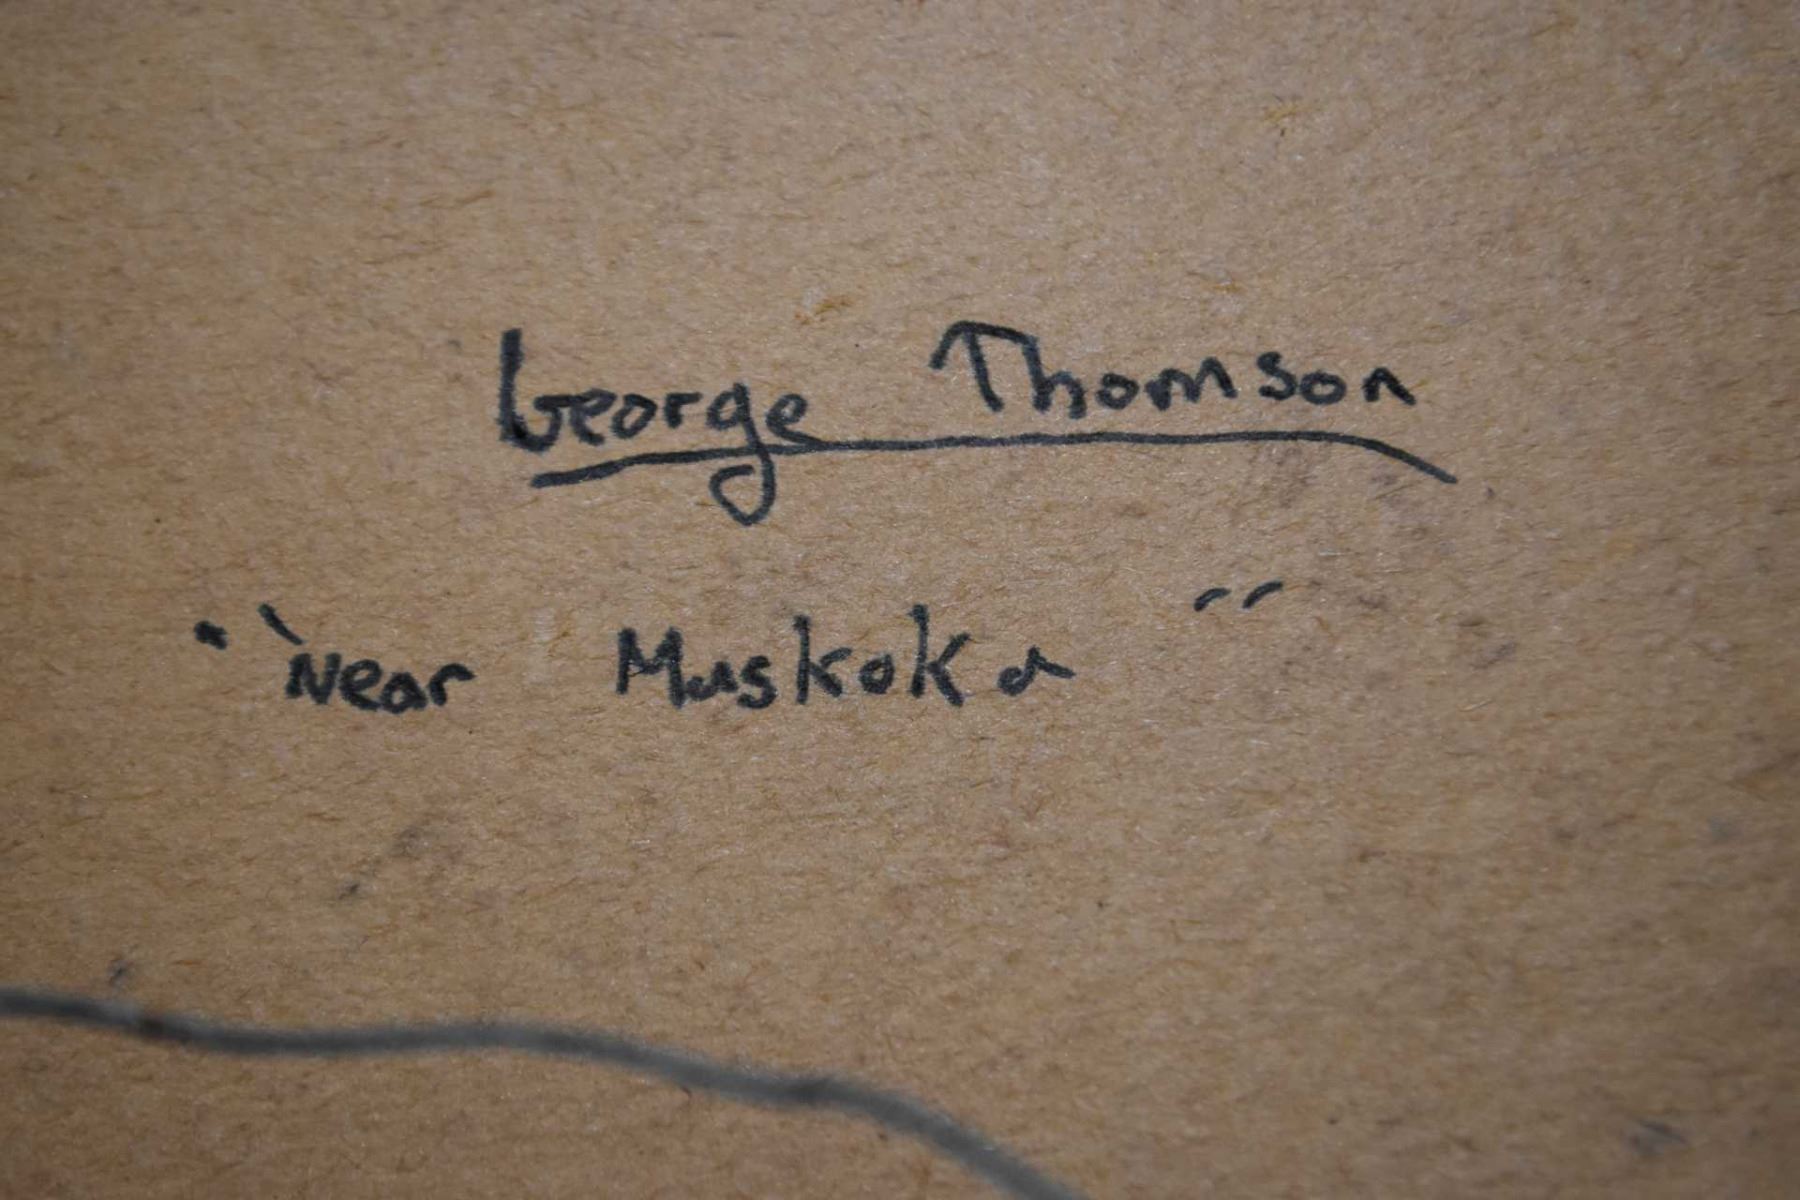 George Thomson
"Near Muskoka"